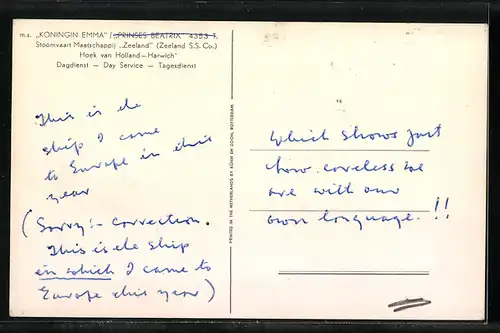 m.s. „KONINGIN EMMA" / „PRINSES BEATRIX" 4353 T.
Stoomvaart Maatschappij „Zeeland" (Zeeland S.S. Co.)
Hoek van Holland—Harwich
Dagdienst — Day Service — Tagesdienst
This is the
ship I came
to Europe in this
year
(Sorry :- correction.
This is the ship
in which I came to
Europe this year)
PRINTED IN THE NETHERLANDS BY DÖHM EN ZOON, ROTTERDAM
Which shows just
how careless we
are with our
own language. !!